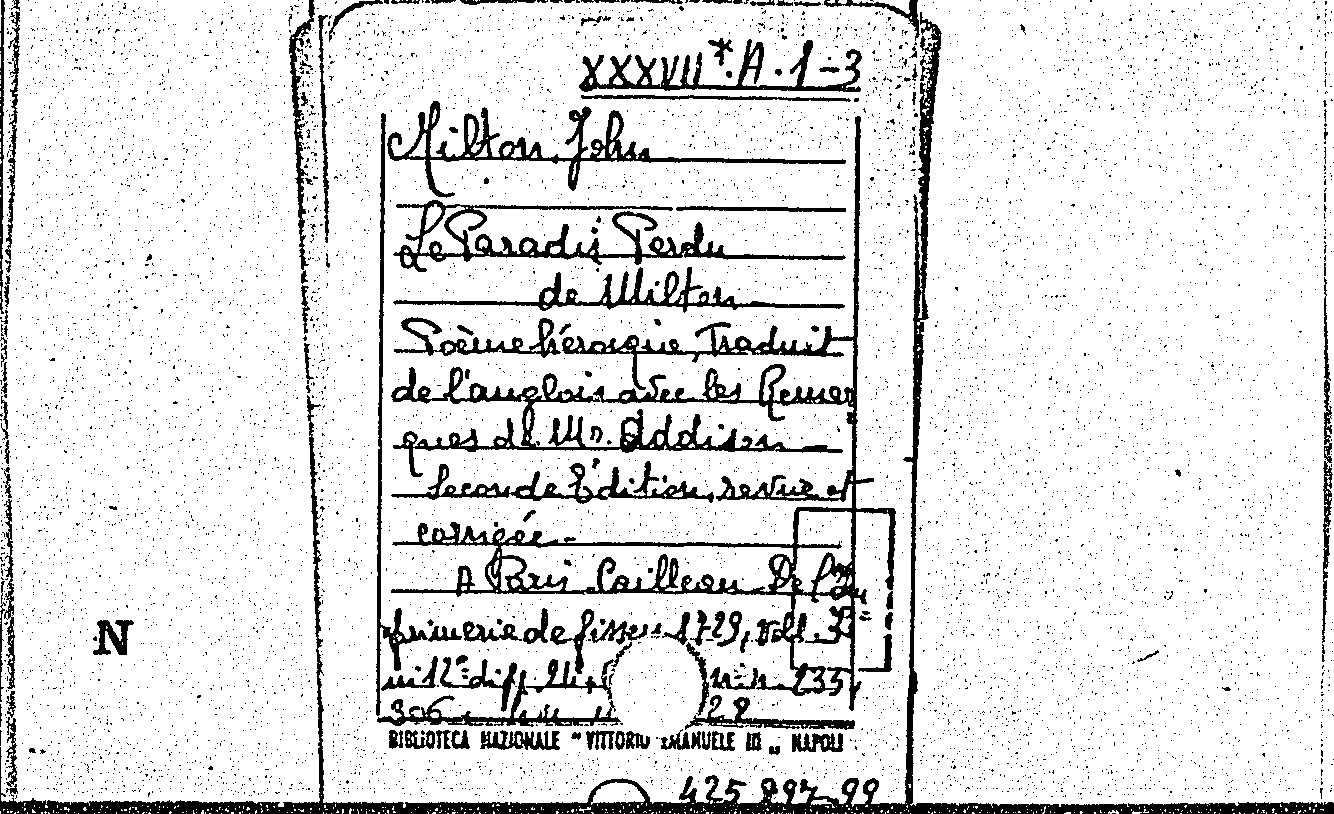 XXXVII*.A.1-3
Milton, John
Le Paradis Perdu
de Milton
Poème héroïque, Traduit
de l'anglois avec les Remar
ques de Mr. Addison
Seconde Édition, revue et
corrigée.
A Paris Cailleau De l'Im
primerie de 1729, voll. 3
in 12° diff. n.n. 235,
306 28
BIBLIOTECA NAZIONALE "VITTORIO EMANUELE III" NAPOLI
N
425 897-99